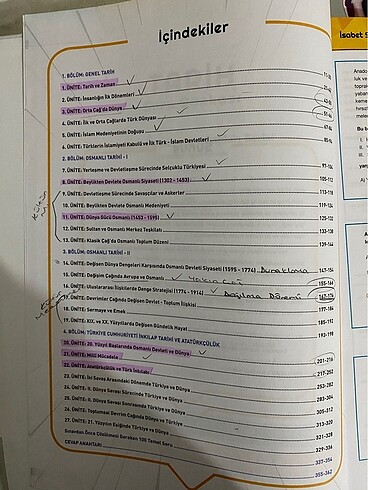 İçindekiler
1. BÖLÜM: GENEL TARİH
1. ÜNİTE: Tarih ve Zaman
2. ÜNİTE: İnsanlığın İlk Dönemleri
3. ÜNİTE: Orta Çağ'da Dünya
4. ÜNİTE: İlk ve Orta Çağlarda Türk Dünyası
5. ÜNİTE: İslam Medeniyetinin Doğuşu
6. ÜNİTE: Türklerin İslamiyeti Kabulü ve İlk Türk - İslam Devletleri
2. BÖLÜM: OSMANLI TARİHİ - I
7. ÜNİTE: Yerleşme ve Devletleşme Sürecinde Selçuklu Türkiyesi 97-104
8. ÜNİTE: Beylikten Devlete Osmanlı Siyaseti (1302 - 1453) 105-112
9. ÜNİTE: Devletleşme Sürecinde Savaşçılar ve Askerler 113-118
10. ÜNİTE: Beylikten Devlete Osmanlı Medeniyeti 119-124
11. ÜNİTE: Dünya Gücü Osmanlı (1453 - 1595) 125-132
12. ÜNİTE: Sultan ve Osmanlı Merkez Teşkilatı 133-138
13. ÜNİTE: Klasik Çağ'da Osmanlı Toplum Düzeni 139-144
3. BÖLÜM: OSMANLI TARİHİ - II
14. ÜNİTE: Değişen Dünya Dengeleri Karşısında Osmanlı Devleti Siyaseti (1595 - 1774) Duraklama 147-154
15. ÜNİTE: Değişim Çağında Avrupa ve Osmanlı 155-166
16. ÜNİTE: Uluslararası İlişkilerde Denge Stratejisi (1774 - 1914) Dağılma Dönemi 167-176
17. ÜNİTE: Devrimler Çağında Değişen Devlet - Toplum İlişkisi 177-184
18. ÜNİTE: Sermaye ve Emek 185-192
19. ÜNİTE: XIX. ve XX. Yüzyıllarda Değişen Gündelik Hayat 193-198
4. BÖLÜM: TÜRKİYE CUMHURİYETİ İNKILAP TARİHİ VE ATATÜRKÇÜLÜK
20. ÜNİTE: 20. Yüzyıl Başlarında Osmanlı Devleti ve Dünya 201-216
21. ÜNİTE: Milli Mücadele 217-252
22. ÜNİTE: Atatürkçülük ve Türk İnkılabı 253-282
23. ÜNİTE: İki Savaş Arasındaki Dönemde Türkiye ve Dünya 283-304
24. ÜNİTE: II. Dünya Savaşı Sürecinde Türkiye ve Dünya 305-312
25. ÜNİTE: II. Dünya Savaşı Sonrasında Türkiye ve Dünya 313-320
26. ÜNİTE: Toplumsal Devrim Çağında Dünya ve Türkiye 321-328
27. ÜNİTE: 21. Yüzyılın Eşiğinde Türkiye ve Dünya 329-336
Sınavdan Önce Çözülmesi Gereken 100 Temel Soru 337-354
CEVAP ANAHTARI 355-362